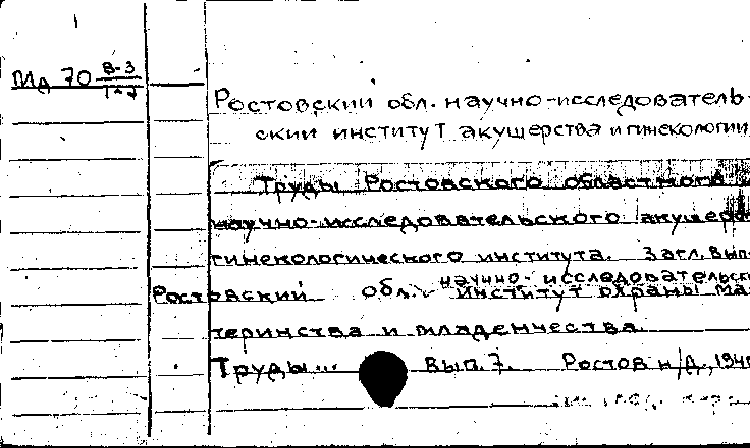 Мд 70 8-3
1-7
Ростовский обл. научно-исследователь-
ский институт акушерства и гинекологии
Труды Ростовского областного
научно-исследовательского акушеро-
гинекологического института. Загл. вып.
Ростовский обл. научно-исследовательск
институт охраны ма-
теринства и младенчества
Труды... Вып. 7. Ростов н/Д., 194